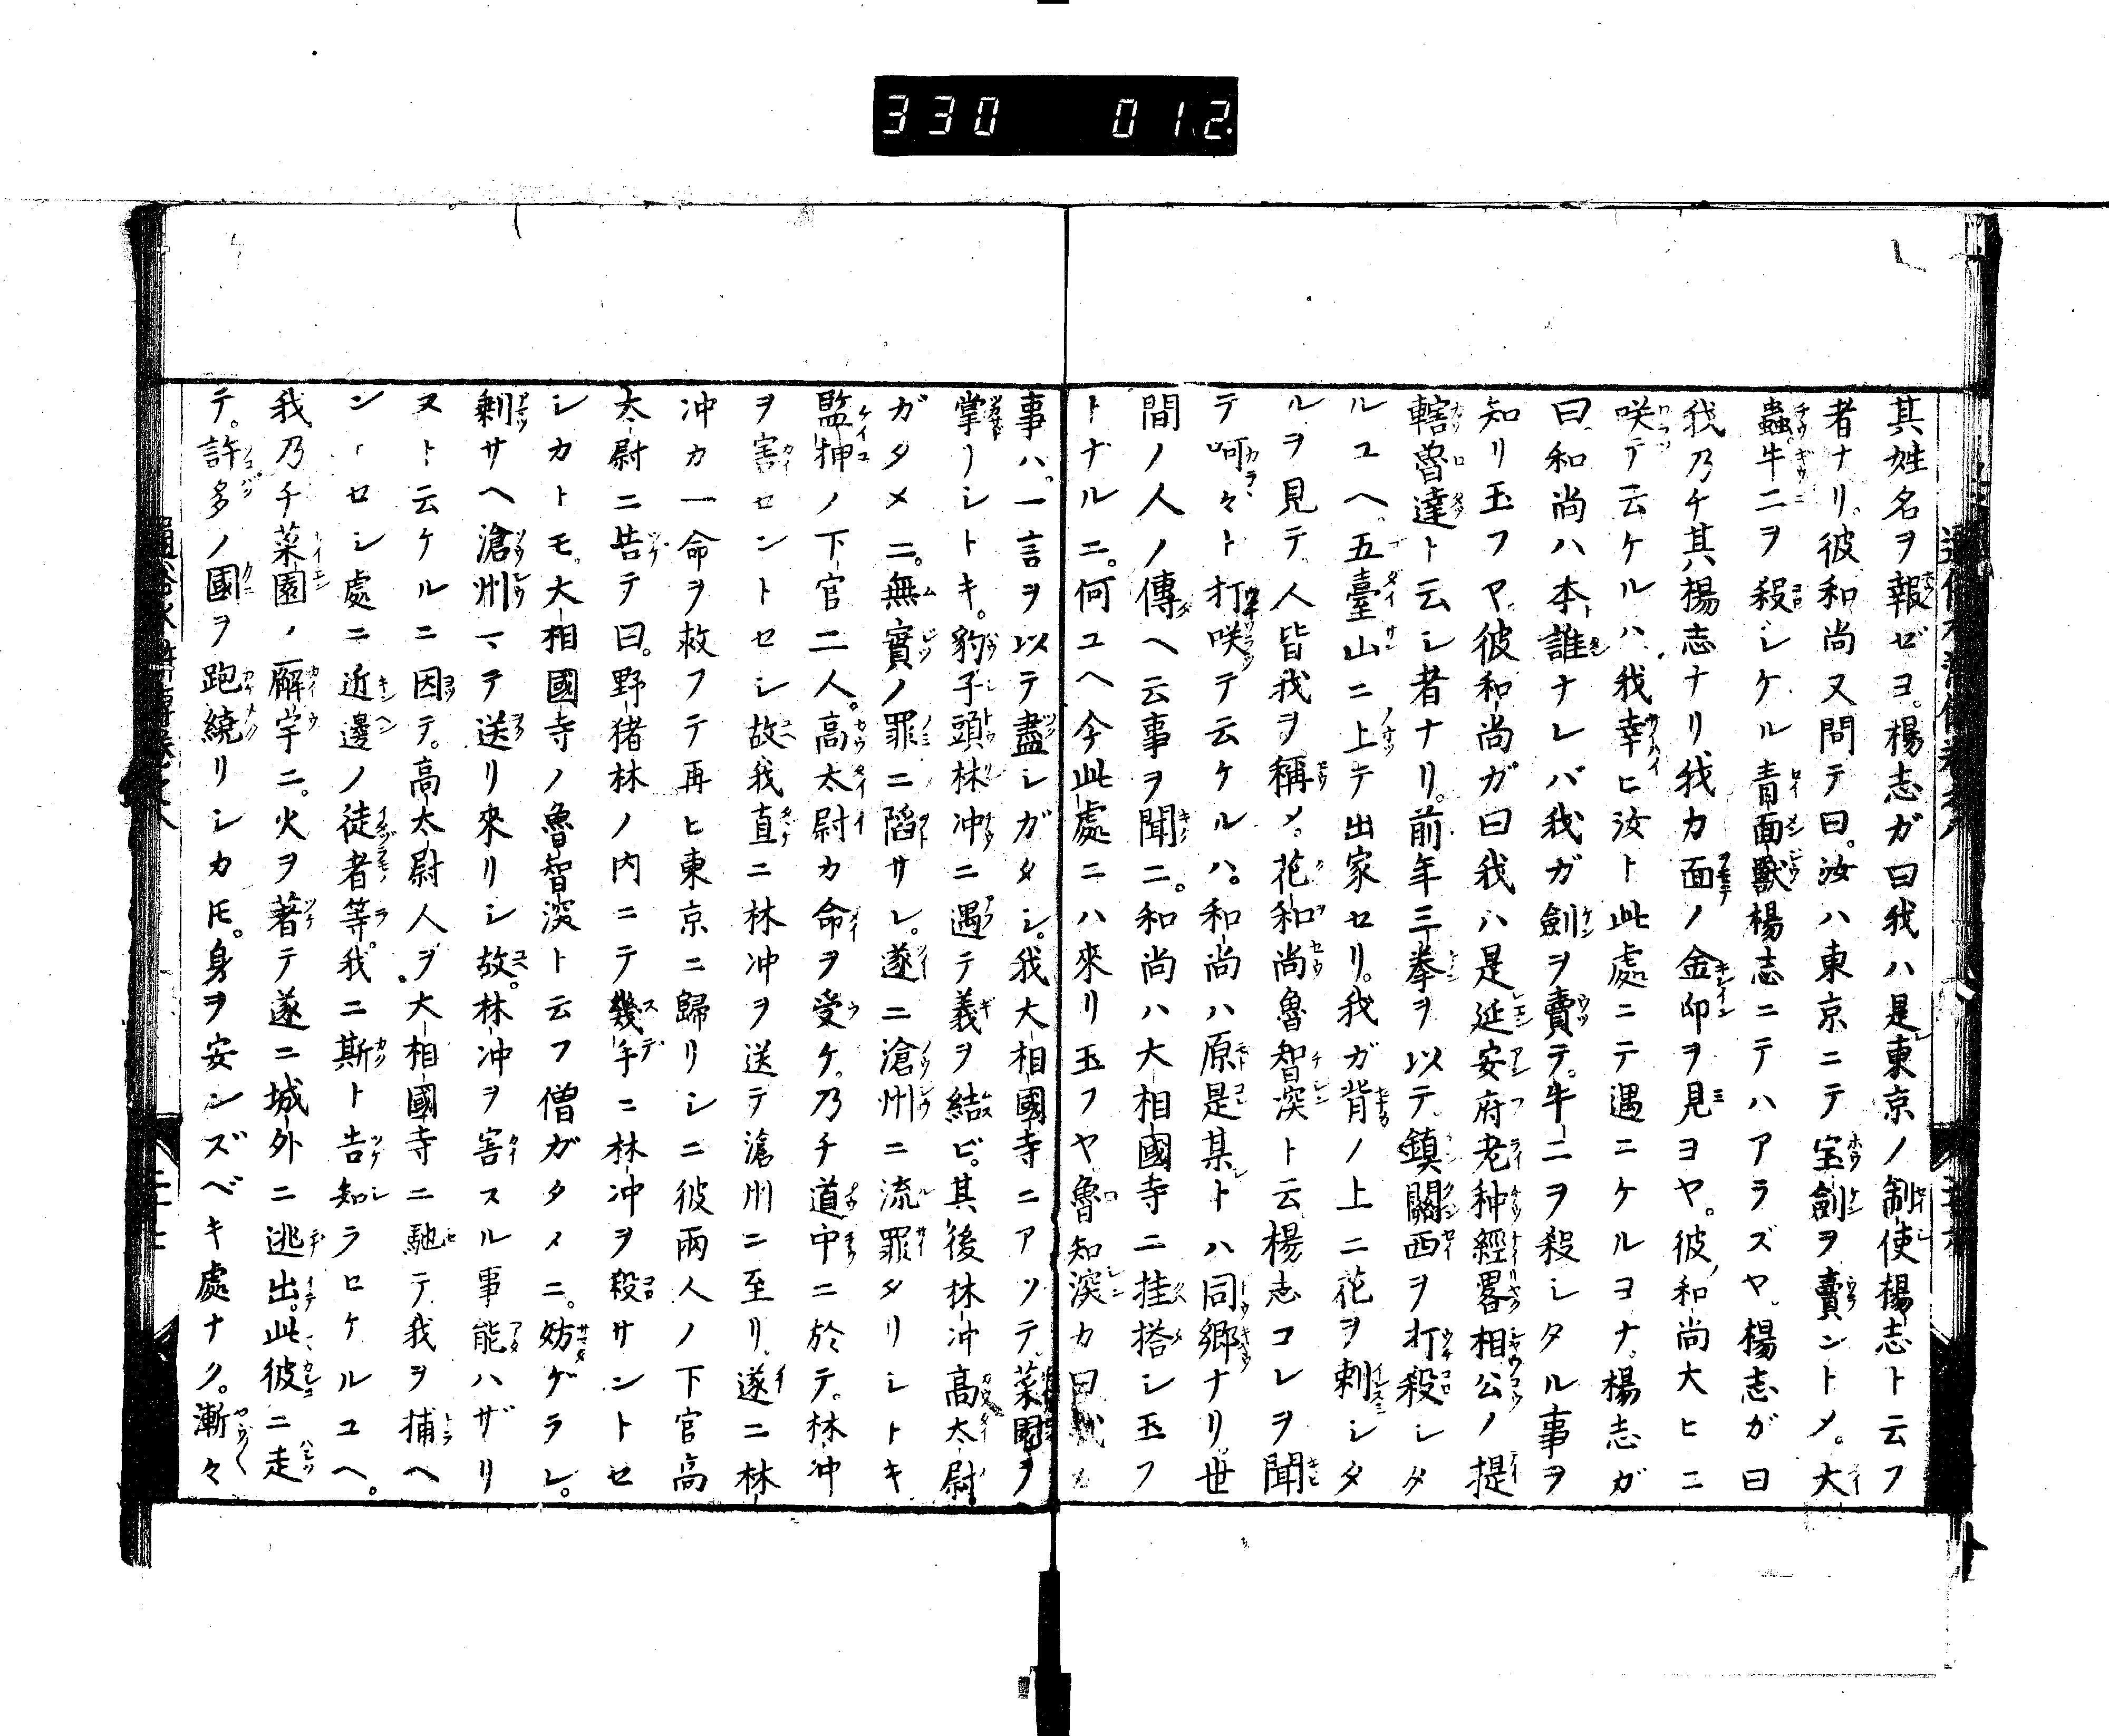 330 012
其姓名ヲ報ゼヨ。楊志ガ曰我ハ是東京ノ制使楊志ト云フ
者ナリ。彼和尚又問テ曰。汝ハ東京ニテ宝劍ヲ賣ントメ。大
蟲牛二ヲ殺シケル青面獸楊志ニテハアラズヤ。楊志ガ曰
我乃チ其楊志ナリ我カ面ノ金印ヲ見ヨヤ。彼和尚大ヒニ
咲テ云ケルハ我幸ヒ汝ト此處ニテ遇ニケルヨナ。楊志ガ
曰和尚ハ本誰ナレバ我ガ劍ヲ賣テ。牛二ヲ殺シタル事ヲ
知リ玉フヤ。彼和尚ガ曰我ハ是延安府老种經畧相公ノ提
轄魯達ト云シ者ナリ。前年三拳ヲ以テ鎮關西ヲ打殺シタ
ルユヘ五臺山ニ上テ出家セリ。我ガ背ノ上ニ花ヲ刺シタ
ルヲ見テ人皆我ヲ稱メ。花和尚魯智深ト云楊志コレヲ聞
テ呵々ト打咲テ云ケルハ。和尚ハ原是某トハ同郷ナリ世
間ノ人ノ傳ヘ云事ヲ聞ニ。和尚ハ大相國寺ニ挂搭シ玉フ
トナルニ。何ユヘ今此處ニハ來リ玉フヤ魯知深カ曰我
事ハ。一言ヲ以テ盡シガタシ。我大相國寺ニアツテ。菜園ヲ
掌リシトキ。豹子頭林冲ニ遇テ義ヲ結ビ。其後林冲高太尉
ガタメニ。無實ノ罪ニ陷サレ。遂ニ滄州ニ流罪タリシトキ
監押ノ下官二人。高太尉カ命ヲ受ケ。乃チ道中ニ於テ。林冲
ヲ害セントセシ故我直ニ林冲ヲ送テ滄州ニ至リ。遂ニ林
冲カ一命ヲ救フテ再ヒ東京ニ歸リシニ彼兩人ノ下官高
太尉ニ告テ曰。野猪林ノ内ニテ幾乎ニ林冲ヲ殺サントセ
シカトモ。大相國寺ノ魯智深ト云フ僧ガタメニ。妨ゲラレ。
剰サヘ滄州マテ送リ來リシ故。林冲ヲ害スル事能ハザリ
ヌト云ケルニ因テ。高太尉人ヲ大相國寺ニ馳テ我ヲ捕ヘ
ントセシ處ニ近邊ノ徒者等。我ニ斯ト告知ラセケルユヘ。
我乃チ菜園ノ廨宇ニ。火ヲ著テ遂ニ城外ニ逃出。此彼ニ走
テ。許多ノ國ヲ跑繞リシカ𪜈。身ヲ安ンズベキ處ナク。漸々